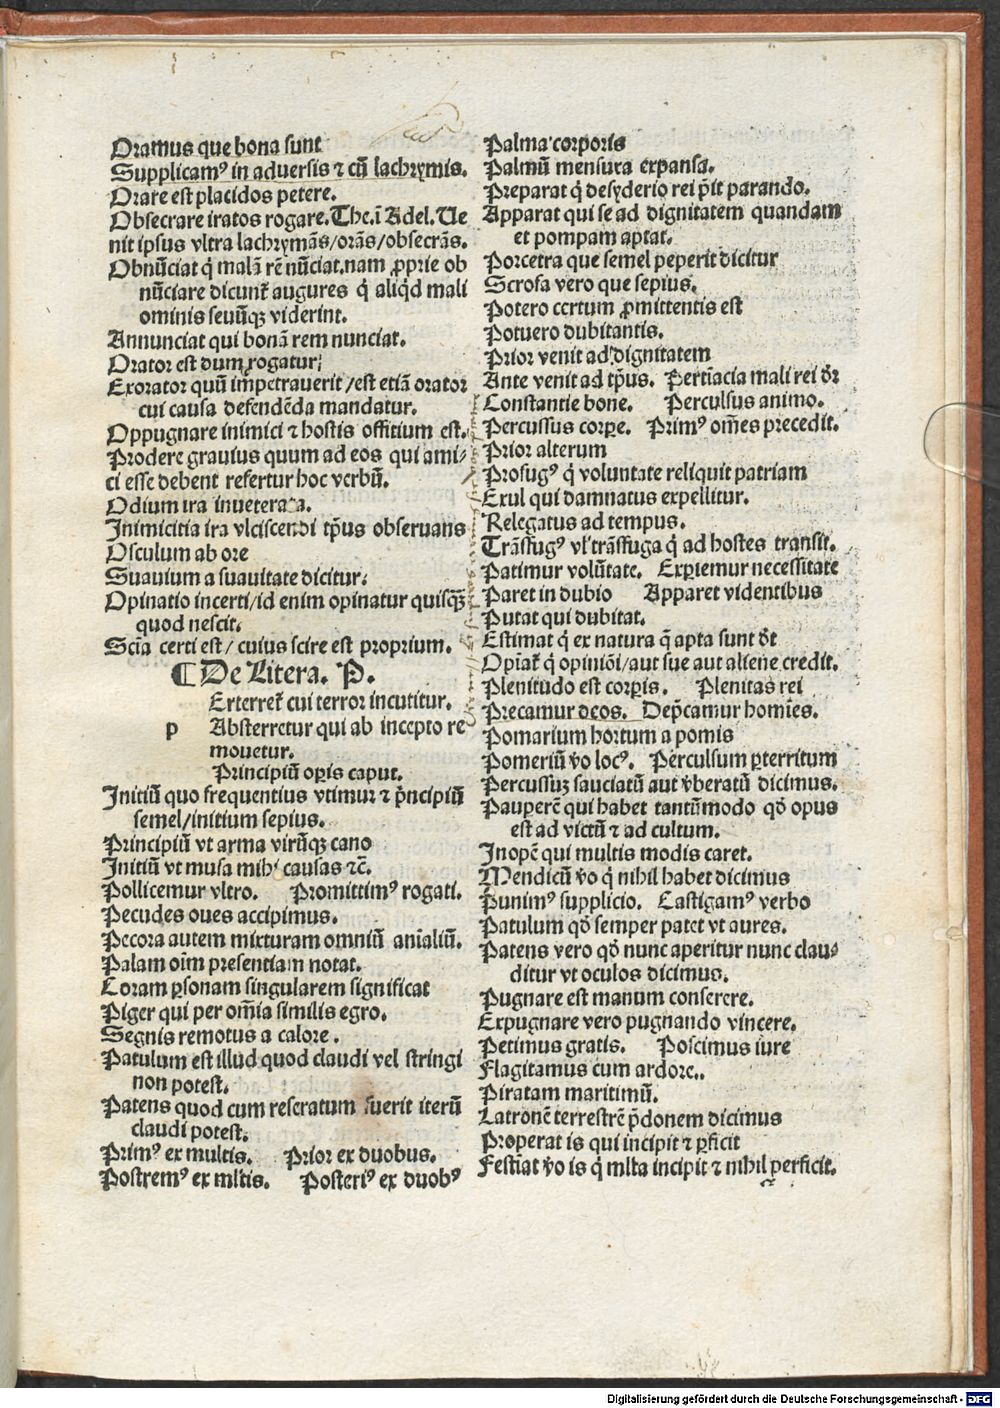 Oramus que bona sunt
Supplicamꝰ in aduersis ⁊ cũ lachrymis.
Orare est placidos petere.
Obsecrare iratos rogare. The. ĩ Adel. Ue
nit ipsus vltra lachrymãs/orãs/obsecrãs.
Obnũciat q̇ malã rẽ nũciat. nam ꝓprie ob
nũciare dicunt̃ augures q̇ aliq̇d mali
ominis seuũqꝫ viderint.
Annunciat qui bonã rem nunciat.
Orator est dum rogatur/
Exorator quũ impetrauerit/est etiã orator
cui causa defendẽda mandatur.
Oppugnare inimici ⁊ hostis offitium est.
Prodere grauius quum ad eos qui ami-
ci esse debent refertur hoc verbũ.
Odium ira inueterata.
Inimicitia ira vlciscendi tp̃us obseruans
Osculum ab ore
Suauium a suauitate dicitur.
Opinatio incerti/id enim opinatur quisqꝫ
quod nescit.
Scĩa certi est/cuius scire est proprium.
¶ De Litera. P.
Exterret̃ cui terror incutitur.
p Absterretur qui ab incepto re
mouetur.
Principiũ oꝑis caput.
Initiũ quo frequentius vtimur ⁊ p̃ncipiũ
semel/initium sepius.
Principiũ vt arma virũqꝫ cano
Initiũ vt musa mihi causas ⁊c̃.
Pollicemur vltro. Promittimꝰ rogati.
Pecudes oues accipimus.
Pecora autem mixturam omniũ anĩaliũ.
Palam oĩm presentiam notat.
Coram ꝑsonam singularem significat
Piger qui per om̃ia similis egro.
Segnis remotus a calore.
Patulum est illud quod claudi vel stringi
non potest.
Patens quod cum reseratum fuerit iterũ
claudi potest.
Primꝰ ex multis. Prior ex duobus.
Postremꝰ ex ml̃tis. Posteriꝰ ex duobꝰ
Palma corporis
Palmũ mensura expansa.
Preparat q̇ desyderio rei p̃it parando.
Apparat qui se ad dignitatem quandam
et pompam aptat.
Porcetra que semel peperit dicitur
Scrofa vero que sepius.
Potero certum ꝓmittentis est
Potuero dubitantis.
Prior venit ad dignitatem
Ante venit ad tp̃us. Pertĩacia mali rei dr̃
Constantie bone. Perculsus animo.
Percussus corꝑe. Primꝰ om̃es precedit.
Prior alterum
Profugꝰ q̇ voluntate reliquit patriam
Exul qui damnatus expellitur.
Relegatus ad tempus.
Trãsfugꝰ vl̃ trãsfuga q̇ ad hostes transit.
Patimur volũtate. Exꝑiemur necessitate
Paret in dubio Apparet videntibus
Putat qui dubitat.
Estimat q̇ ex natura q̃ apta sunt dt̃
Opĩat̃ q̇ opiniõi/aut sue aut aliene credit.
Plenitudo est corꝑis. Plenitas rei
Precamur deos. Dep̃camur homĩes.
Pomarium hortum a pomis
Pomeriũ ṽo locꝰ. Perculsum ꝑterritum
Percussuꝫ sauciatũ aut ṽberatũ dicimus.
Pauperẽ qui habet tantũmodo qd̃ opus
est ad victũ ⁊ ad cultum.
Inopẽ qui multis modis caret.
Mendicũ ṽo q̇ nihil habet dicimus
Punimꝰ supplicio. Castigamꝰ verbo
Patulum qd̃ semper patet vt aures.
Patens vero qd̃ nunc aperitur nunc clau-
ditur vt oculos dicimus.
Pugnare est manum conserere.
Expugnare vero pugnando vincere.
Petimus gratis. Poscimus iure
Flagitamus cum ardore..
Piratam maritimũ.
Latronẽ terrestrẽ p̃donem dicimus
Properat is qui incipit ⁊ ꝑficit
Festĩat ṽo is q̇ ml̃ta incipit ⁊ nihil perficit.
Digitalisierung gefördert durch die Deutsche Forschungsgemeinschaft - DFG